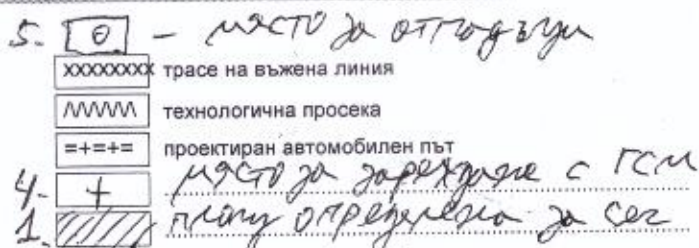 5. - място за отпадъци
xxxxxxxx трасе на въжена линия
технологична просека
=+=+= проектиран автомобилен път
4. + място за зареждане с ГСМ
1. площ определена за сеч